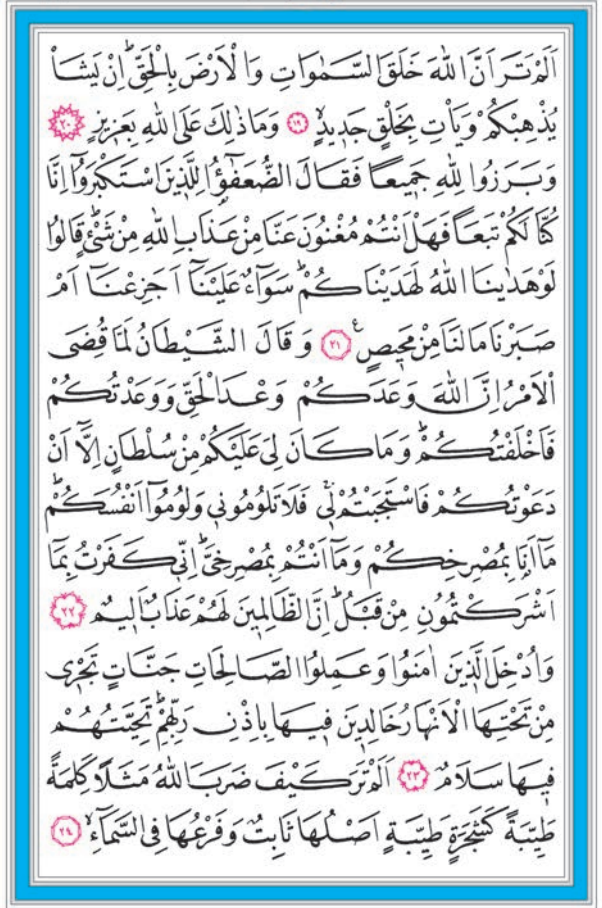 اَلَمْ تَرَ اَنَّ اللّٰهَ خَلَقَ السَّمٰوَاتِ وَالْاَرْضَ بِالْحَقِّۜ اِنْ يَشَأْ
يُذْهِبْكُمْ وَيَأْتِ بِخَلْقٍ جَد۪يدٍۙ ﴿١٩﴾ وَمَا ذٰلِكَ عَلَى اللّٰهِ بِعَز۪يزٍ ﴿٢٠﴾
وَبَرَزُوا لِلّٰهِ جَم۪يعًا فَقَالَ الضُّعَفٰٓؤُ۬ا لِلَّذ۪ينَ اسْتَكْبَرُٓوا اِنَّا
كُنَّا لَكُمْ تَبَعًا فَهَلْ اَنْتُمْ مُغْنُونَ عَنَّا مِنْ عَذَابِ اللّٰهِ مِنْ شَيْءٍۜ قَالُوا
لَوْ هَدٰينَا اللّٰهُ لَهَدَيْنَاكُمْۜ سَوَٓاءٌ عَلَيْنَٓا اَجَزِعْنَٓا اَمْ
صَبَرْنَا مَا لَنَا مِنْ مَح۪يصٍ۟ ﴿٢١﴾ وَقَالَ الشَّيْطَانُ لَمَّا قُضِيَ
الْاَمْرُ اِنَّ اللّٰهَ وَعَدَكُمْ وَعْدَ الْحَقِّ وَوَعَدْتُكُمْ
فَاَخْلَفْتُكُمْۜ وَمَا كَانَ لِيَ عَلَيْكُمْ مِنْ سُلْطَانٍ اِلَّٓا اَنْ
دَعَوْتُكُمْ فَاسْتَجَبْتُمْ ل۪يۚ فَلَا تَلُومُون۪ي وَلُومُٓوا اَنْفُسَكُمْۜ
مَٓا اَنَا۬ بِمُصْرِخِكُمْ وَمَٓا اَنْتُمْ بِمُصْرِخِيَّۜ اِنّ۪ي كَفَرْتُ بِمَٓا
اَشْرَكْتُمُونِ مِنْ قَبْلُۜ اِنَّ الظَّالِم۪ينَ لَهُمْ عَذَابٌ اَل۪يمٌ ﴿٢٢﴾
وَاُدْخِلَ الَّذ۪ينَ اٰمَنُوا وَعَمِلُوا الصَّالِحَاتِ جَنَّاتٍ تَجْر۪ي
مِنْ تَحْتِهَا الْاَنْهَارُ خَالِد۪ينَ ف۪يهَا بِاِذْنِ رَبِّهِمْۜ تَحِيَّتُهُمْ
ف۪يهَا سَلَامٌ ﴿٢٣﴾ اَلَمْ تَرَ كَيْفَ ضَرَبَ اللّٰهُ مَثَلًا كَلِمَةً
طَيِّبَةً كَشَجَرَةٍ طَيِّبَةٍ اَصْلُهَا ثَابِتٌ وَفَرْعُهَا فِي السَّمَٓاءِۙ ﴿٢٤﴾